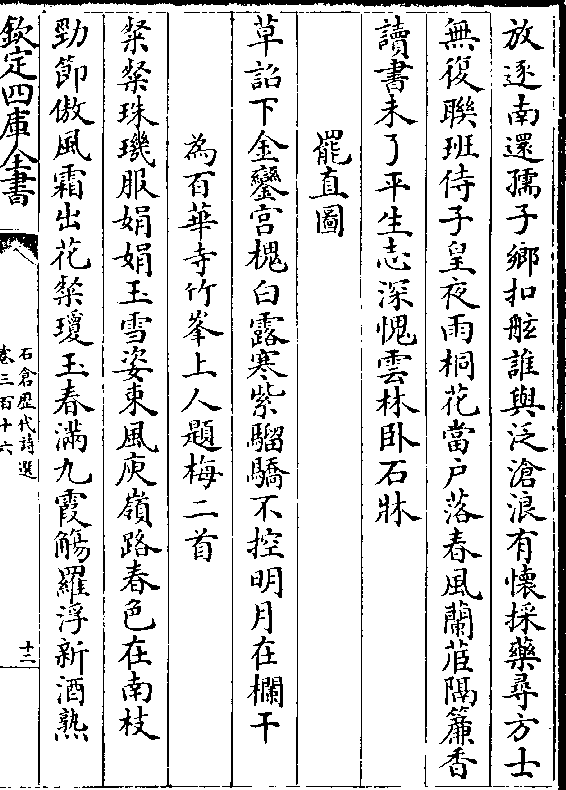 放逐南還孺子鄉扣舷誰與泛滄浪有懷採藥尋方士
無復聯班侍子皇夜雨桐花當户落春風蘭茝隔簾香
讀書未了平生志深愧雲林卧石牀
罷直圖
草詔下金鑾宫槐白露寒紫騮驕不控明月在欄干
為百華寺竹峯上人題梅二首
粲粲珠璣服娟娟玉雪姿東風庾嶺路春色在南枝
勁節傲風霜出花粲瓊玉春滿九霞觴羅浮新酒熟
欽定四庫全書
石倉歴代詩選
卷三百十六
十二